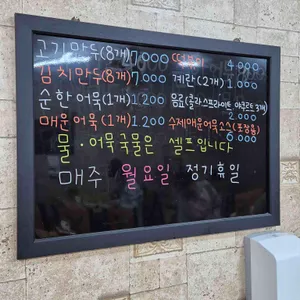 고기만두(8개) 7,000 떡볶이 4,000
김치만두(8개) 7,000 계란(2개) 1,000
순한어묵(1개) 1,200 음료(콜라 스프라이트 야쿠르트 3개) 2,000
매운어묵(1개) 1,200 수제매운어묵소스(포장용) 6,000
물·어묵국물은 셀프입니다
매주 월요일 정기휴일